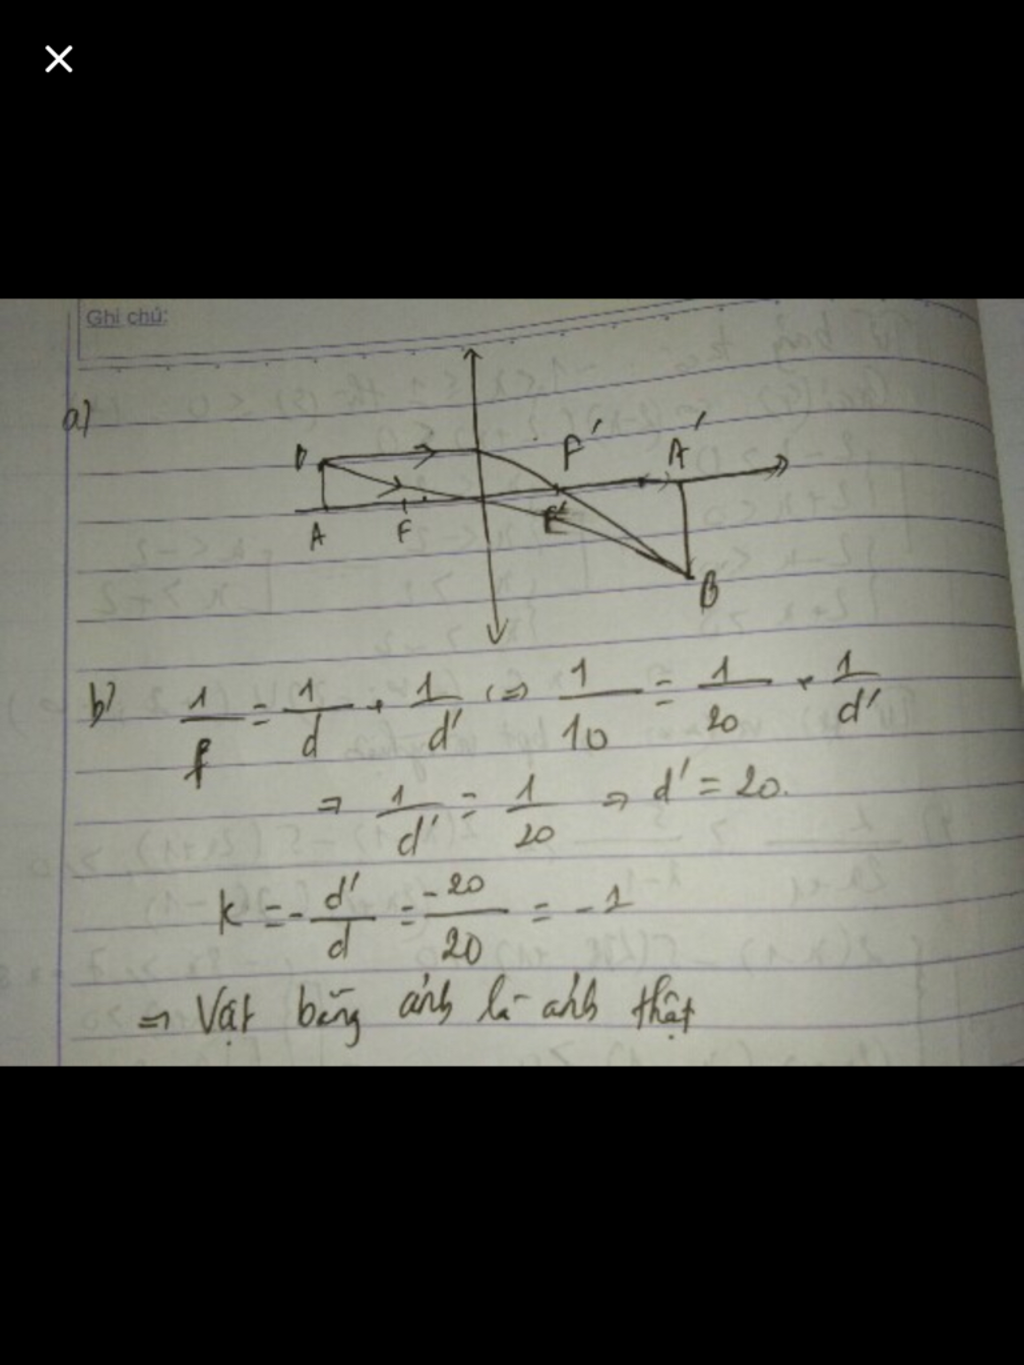 Ghi chú:
a)
F' A'
B
A F F'
B
b) 1/f = 1/d + 1/d' (=> 1/10 = 1/20 + 1/d'
=> 1/d' = 1/20 => d' = 20.
K = - d'/d = -20/20 = -1
=> Vật bằng ảnh là ảnh thật